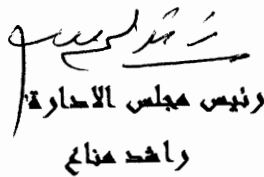 رئيس مجلس الادارة
راشد مناع